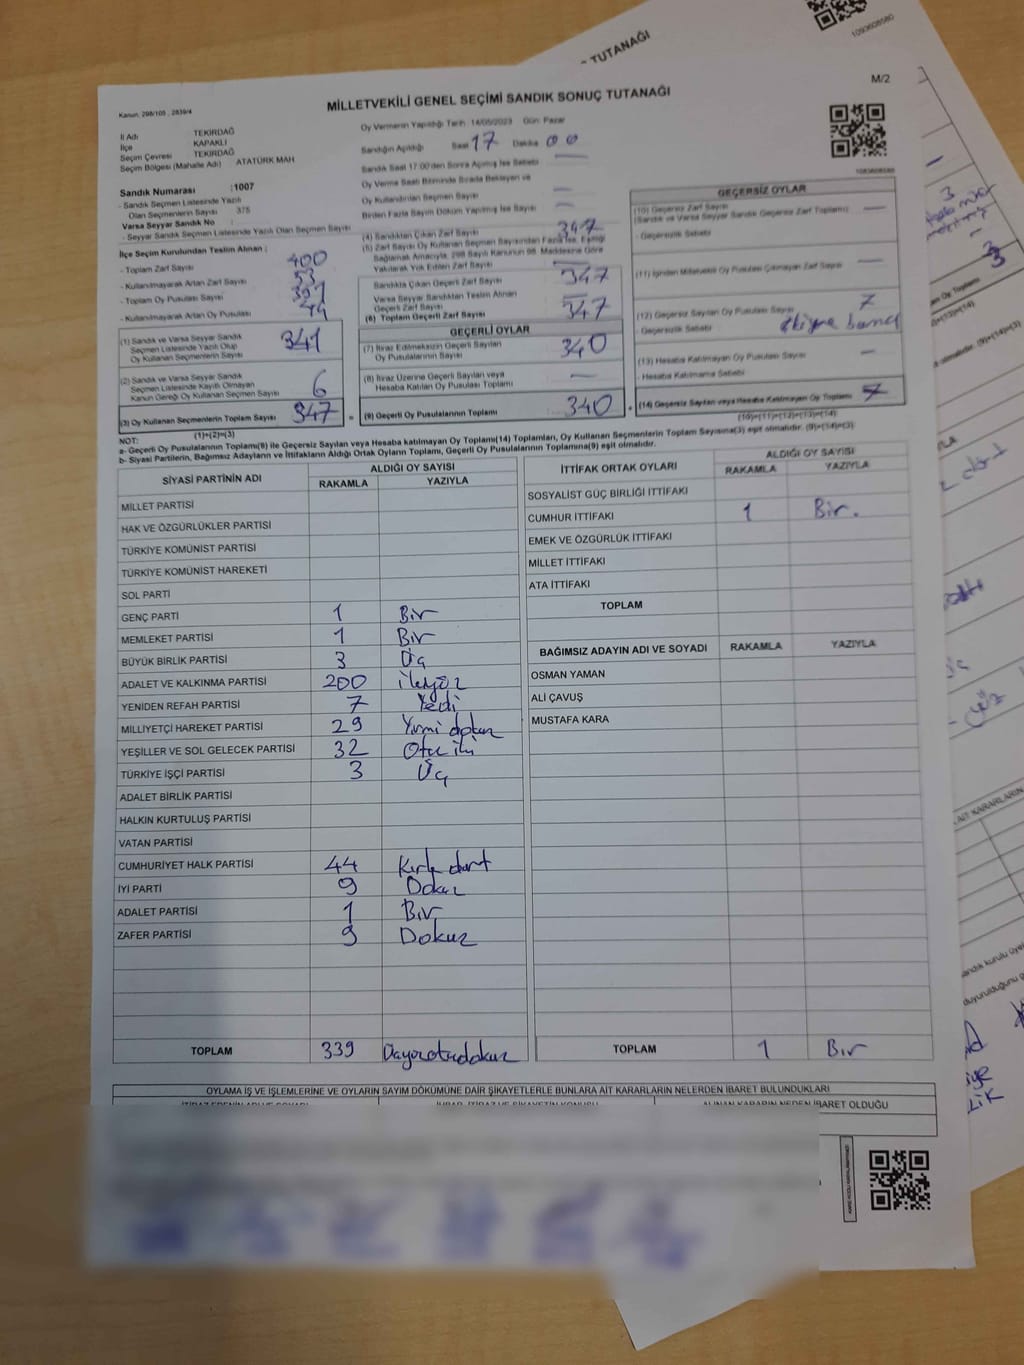 TUTANAĞI
1093608580
M/2
Kanun, 298/105 , 2839/4
MİLLETVEKİLİ GENEL SEÇİMİ SANDIK SONUÇ TUTANAĞI
İl Adı TEKİRDAĞ
İlçe KAPAKLI
Seçim Çevresi TEKİRDAĞ
Seçim Bölgesi (Mahalle Adı) ATATÜRK MAH
Oy Vermenin Yapıldığı Tarih 14/05/2023 Gün: Pazar
Sandığın Açıldığı Saat 17 Dakika 00
Sandık Saat 17:00'den Sonra Açılmış İse Sebebi
Oy Verme Saati Bitiminde Sırada Bekleyen ve
Oy Kullandırılan Seçmen Sayısı
Birden Fazla Sayım Döküm Yapılmış İse Sayısı
Sandık Numarası : 1007
- Sandık Seçmen Listesinde Yazılı
Olan Seçmenlerin Sayısı 375
Varsa Seyyar Sandık No
- Seyyar Sandık Seçmen Listesinde Yazılı Olan Seçmen Sayısı
İlçe Seçim Kurulundan Teslim Alınan ;
- Toplam Zarf Sayısı 400
- Kullanılmayarak Artan Zarf Sayısı 53
- Toplam Oy Pusulası Sayısı 391
- Kullanılmayarak Artan Oy Pusulası 44
(1) Sandık ve Varsa Seyyar Sandık
Seçmen Listesinde Yazılı Olup
Oy Kullanan Seçmenlerin Sayısı 341
(2) Sandık ve Varsa Seyyar Sandık
Seçmen Listesinde Kayıtlı Olmayan
Kanun Gereği Oy Kullanan Seçmen Sayısı 6
(3) Oy Kullanan Seçmenlerin Toplam Sayısı 347 =
(1)+(2)=(3)
(4) Sandıktan Çıkan Zarf Sayısı 347
(5) Zarf Sayısı Oy Kullanan Seçmen Sayısından Fazla İse, Eşitliği
Sağlamak Amacıyla, 298 Sayılı Kanunun 98. Maddesine Göre
Yakılarak Yok Edilen Zarf Sayısı
Sandıkta Çıkan Geçerli Zarf Sayısı 347
Varsa Seyyar Sandıktan Teslim Alınan
Geçerli Zarf Sayısı
(6) Toplam Geçerli Zarf Sayısı 347
GEÇERLİ OYLAR
(7) İtiraz Edilmeksizin Geçerli Sayılan
Oy Pusulalarının Sayısı 340
(8) İtiraz Üzerine Geçerli Sayılan veya
Hesaba Katılan Oy Pusulası Toplamı
(9) Geçerli Oy Pusulalarının Toplamı 340 +
GEÇERSİZ OYLAR
(10) Geçersiz Zarf Sayısı
(Sandık ve Varsa Seyyar Sandık Geçersiz Zarf Toplamı)
- Geçersizlik Sebebi
(11) İçinden Milletvekili Oy Pusulası Çıkmayan Zarf Sayısı
(12) Geçersiz Sayılan Oy Pusulası Sayısı 7
- Geçersizlik Sebebi
(13) Hesaba Katılmayan Oy Pusulası Sayısı
- Hesaba Katılmama Sebebi
(14) Geçersiz Sayılan veya Hesaba Katılmayan Oy Toplamı 7
(10)+(11)+(12)+(13)=(14)
NOT:
a- Geçerli Oy Pusulalarının Toplamı(9) ile Geçersiz Sayılan veya Hesaba katılmayan Oy Toplamı(14) Toplamları, Oy Kullanan Seçmenlerin Toplam Sayısına(3) eşit olmalıdır. (9)+(14)=(3)
b- Siyasi Partilerin, Bağımsız Adayların ve İttifakların Aldığı Ortak Oyların Toplamı, Geçerli Oy Pusulalarının Toplamına(9) eşit olmalıdır.
SİYASİ PARTİNİN ADI ALDIĞI OY SAYISI
RAKAMLA YAZIYLA
MİLLET PARTİSİ
HAK VE ÖZGÜRLÜKLER PARTİSİ
TÜRKİYE KOMÜNİST PARTİSİ
TÜRKİYE KOMÜNİST HAREKETİ
SOL PARTİ
GENÇ PARTİ 1 Bir
MEMLEKET PARTİSİ 1 Bir
BÜYÜK BİRLİK PARTİSİ 3 Üç
ADALET VE KALKINMA PARTİSİ 200 ikiyüz
YENİDEN REFAH PARTİSİ 7 Yedi
MİLLİYETÇİ HAREKET PARTİSİ 29 Yirmi dokuz
YEŞİLLER VE SOL GELECEK PARTİSİ 32 Otuz iki
TÜRKİYE İŞÇİ PARTİSİ 3 Üç
ADALET BİRLİK PARTİSİ
HALKIN KURTULUŞ PARTİSİ
VATAN PARTİSİ
CUMHURİYET HALK PARTİSİ 44 Kırk dört
İYİ PARTİ 9 Dokuz
ADALET PARTİSİ 1 Bir
ZAFER PARTİSİ 9 Dokuz
TOPLAM 339 Üçyüzotuzdokuz
İTTİFAK ORTAK OYLARI ALDIĞI OY SAYISI
RAKAMLA YAZIYLA
SOSYALİST GÜÇ BİRLİĞİ İTTİFAKI
CUMHUR İTTİFAKI 1 Bir.
EMEK VE ÖZGÜRLÜK İTTİFAKI
MİLLET İTTİFAKI
ATA İTTİFAKI
TOPLAM
BAĞIMSIZ ADAYIN ADI VE SOYADI RAKAMLA YAZIYLA
OSMAN YAMAN
ALİ ÇAVUŞ
MUSTAFA KARA
TOPLAM 1 Bir
OYLAMA İŞ VE İŞLEMLERİNE VE OYLARIN SAYIM DÖKÜMÜNE DAİR ŞİKAYETLERLE BUNLARA AİT KARARLARIN NELERDEN İBARET BULUNDUKLARI
ALINAN KARARIN NEDEN İBARET OLDUĞU